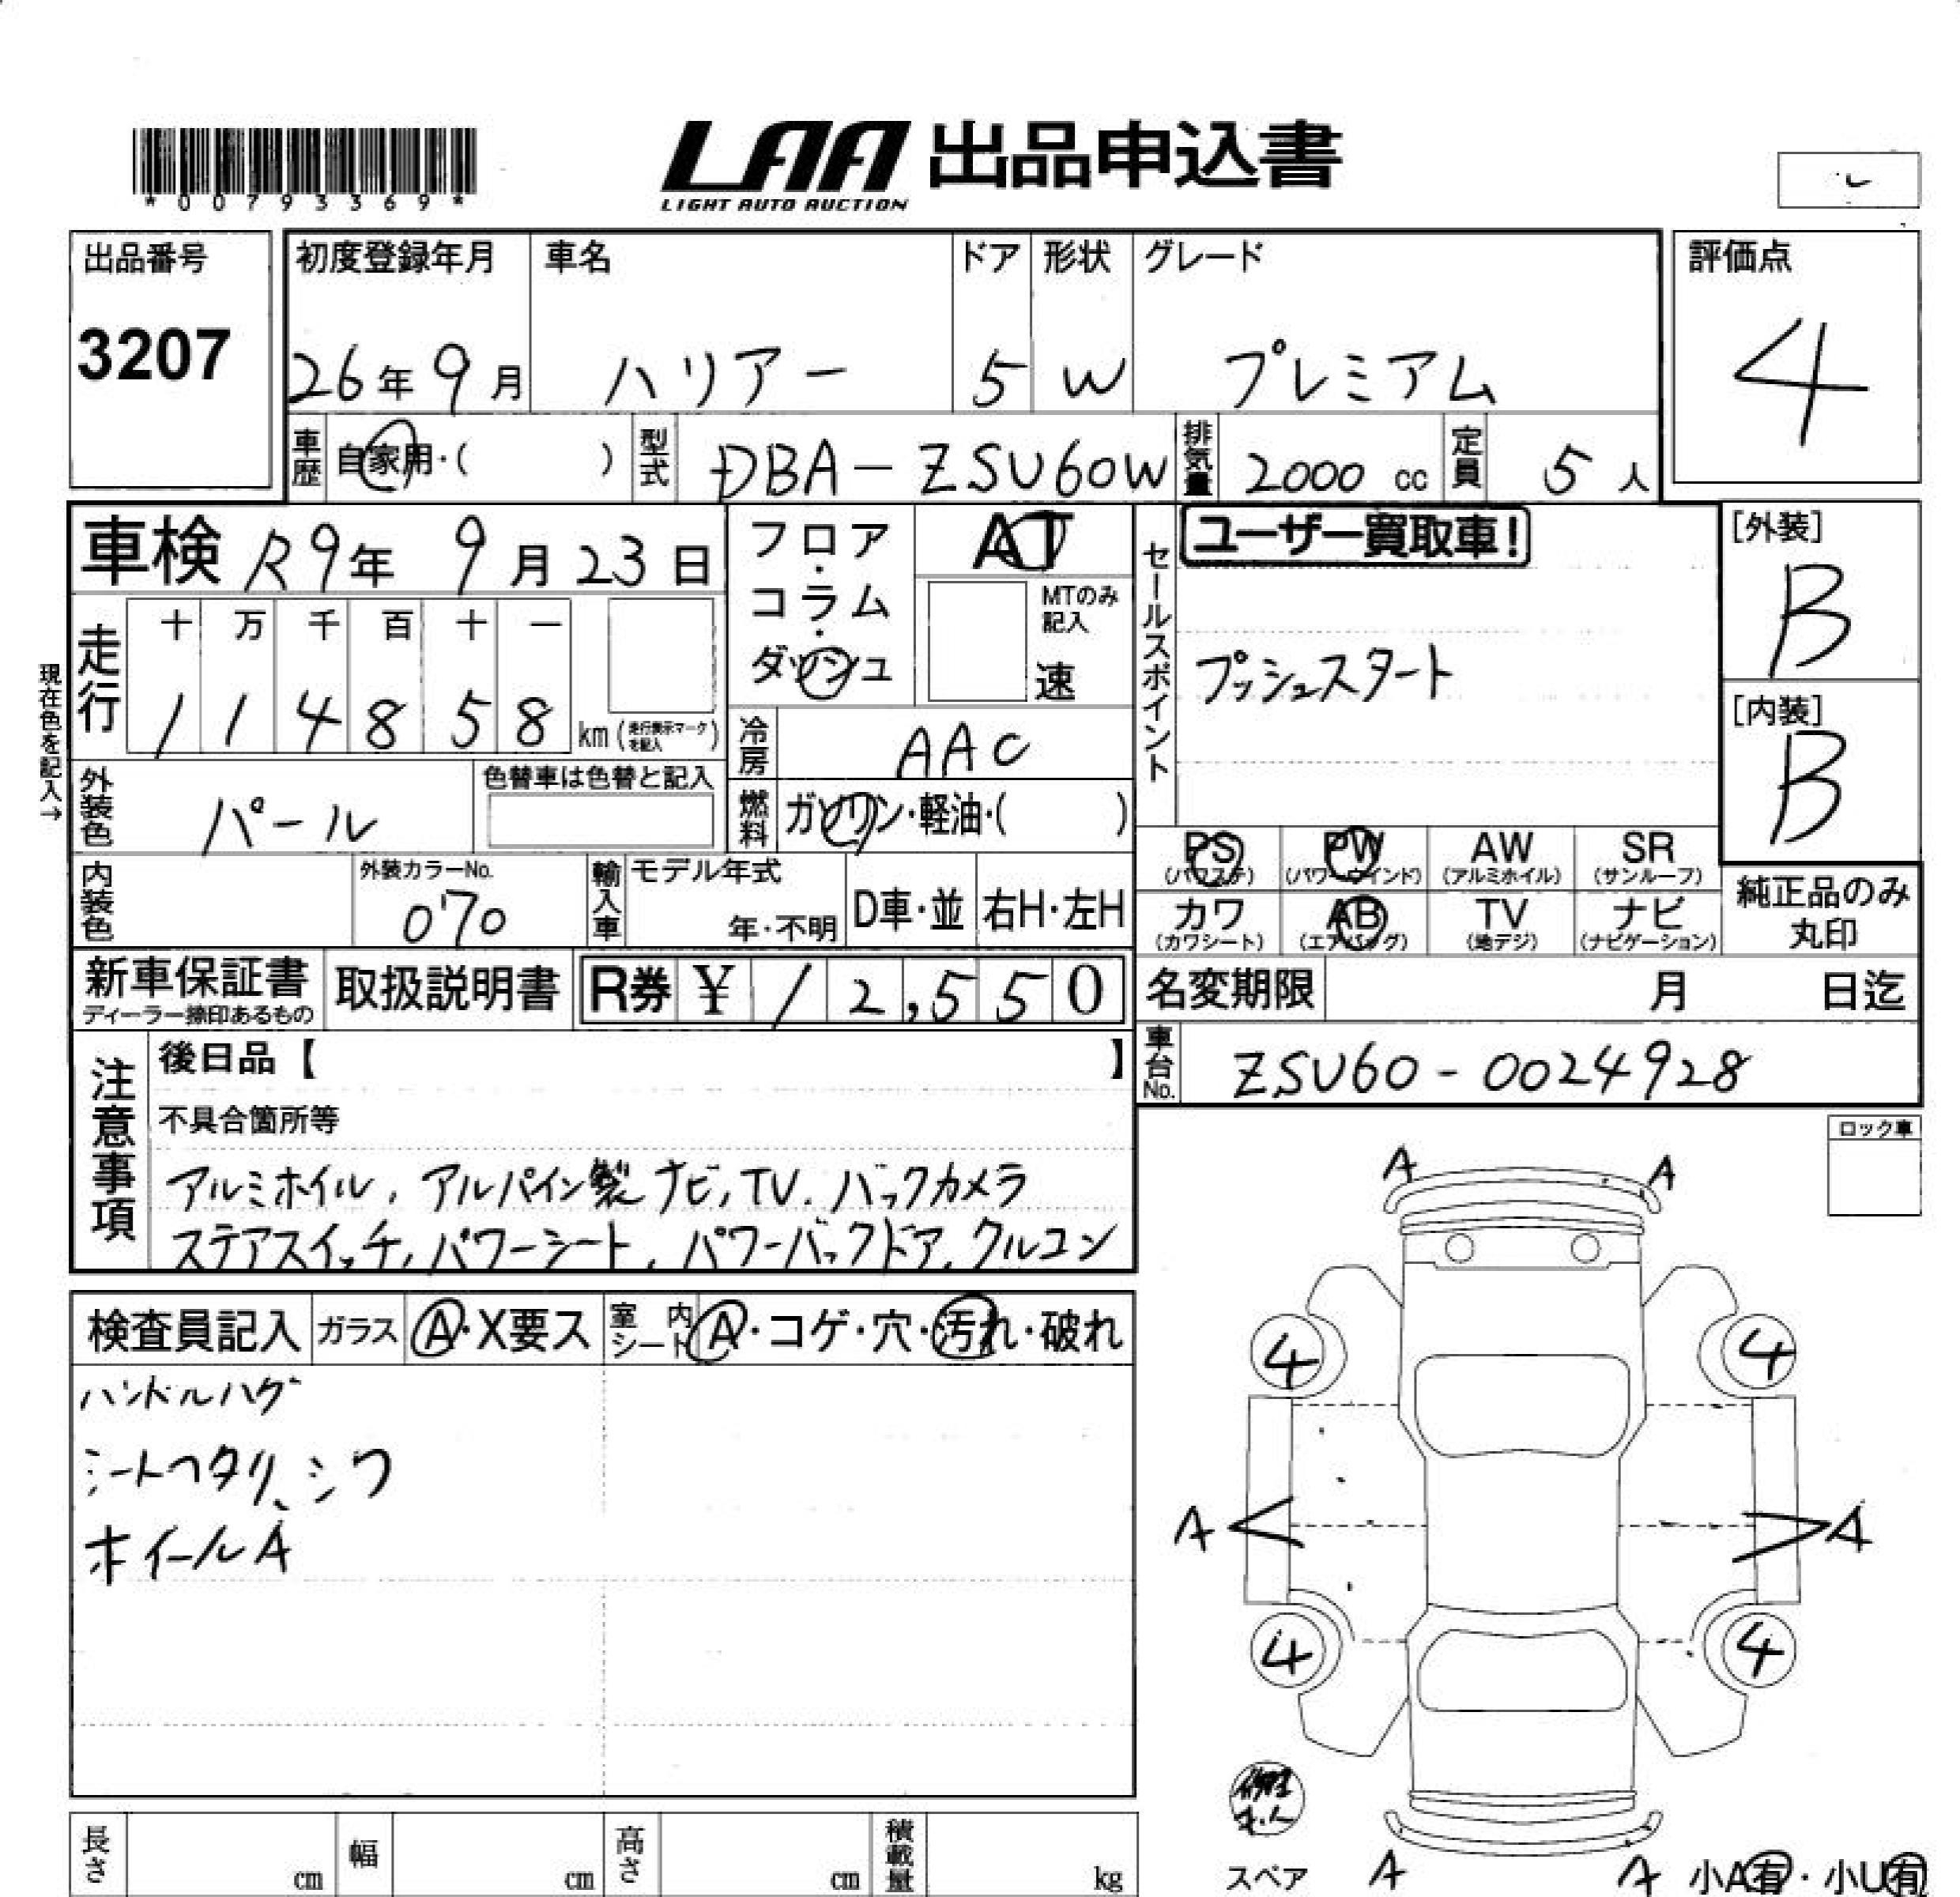 *00793369*
LAA 出品申込書
LIGHT AUTO AUCTION
出品番号
3207
初度登録年月
26年9月
車名
ハリアー
ドア
5
形状
W
グレード
プレミアム
評価点
4
車歴
自家用・( )
型式
DBA-ZSU60W
排気量
2000 cc
定員
5人
車検 R9年 9月 23日
フロア・コラム・ダッシュ
AT
MTのみ記入
速
セールスポイント
ユーザー買取車!
プッシュスタート
[外装]
B
[内装]
B
現在色を記入→
走行
十 万 千 百 十 一
1 1 4 8 5 8 km (走行表示マークを記入)
冷房
AAC
外装色
パール
色替車は色替と記入
燃料
ガソリン・軽油・( )
PS (パワステ)
PW (パワーウインド)
AW (アルミホイル)
SR (サンルーフ)
カワ (カワシート)
AB (エアバッグ)
TV (地デジ)
ナビ (ナビゲーション)
純正品のみ
丸印
内装色
外装カラーNo.
070
輸入車
モデル年式
年・不明
D車・並
右H・左H
新車保証書
ディーラー捺印あるもの
取扱説明書
R券 ¥ 12,550
名変期限 月 日迄
車台No.
ZSU60-0024928
注意事項
後日品【 】
不具合箇所等
アルミホイル, アルパイン製ナビ, TV, バックカメラ
ステアスイッチ, パワーシート, パワーバックドア, クルコン
ロック車
検査員記入
ガラス
A・X要ス
室内シート
A・コゲ・穴・汚れ・破れ
ハンドルハゲ
シートヘタリ、シワ
ホイールA
A A
4 4
A A
4 4
スペア
A A
小A有・小U有
長さ cm
幅 cm
高さ cm
積載量 kg